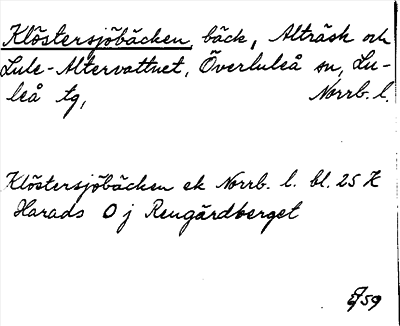 Klöstersjöbäcken, bäck, Alträsk och
Lule-Altervattnet, Överluleå sn, Lu-
leå tg, Norrb. l.
Klöstersjöbäcken ek Norrb. l. bl. 25 K
Harads O j Rengärdberget
59